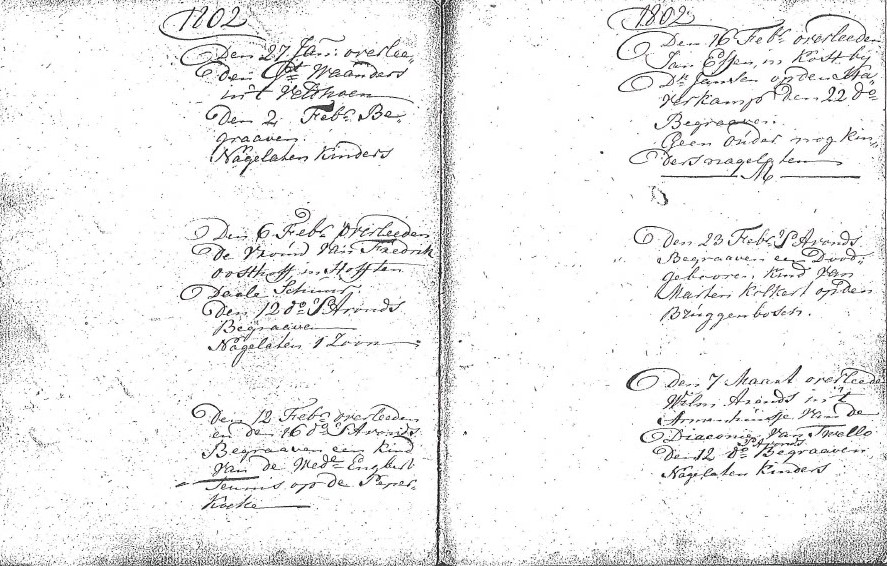 1802
Den 27 Jan: overlee-
den Waanders
in't Velthoen
Den 2 Feb: Be-
graaven
Nagelaten Kinders
Den 6 Feb: overleeden
De Vrouw van Fredrik
Oosthoff, in Hofften
Daale Schuur,
Den 12 do S'Avonds
Begraaven
Nagelaten 1 Zoon
Den 12 Feb: overleeden
en de 16 do S'Avonds
Begraaven een kind
van de Wede Engbert
Teunis op de Peper-
Kocke
1802
Den 16 Feb: overleeden
Jan Essen, in Kost bij
Dk Jansen op den Ha-
verkamp Den 22 do
Begraaven.
Geen ouder nog kin-
ders nagelaten
Den 23 Feb: S'Avonds
Begraaven een Dood-
gebooren kind van
Marten Kolkert op den
Bruggenbosch.
Den 7 Maart overleede
Willm Arends in't
Armenhuisje van de
Diaconie van Twello
Den 12 do S'Avonds Begraaven
Nagelaten Kinders